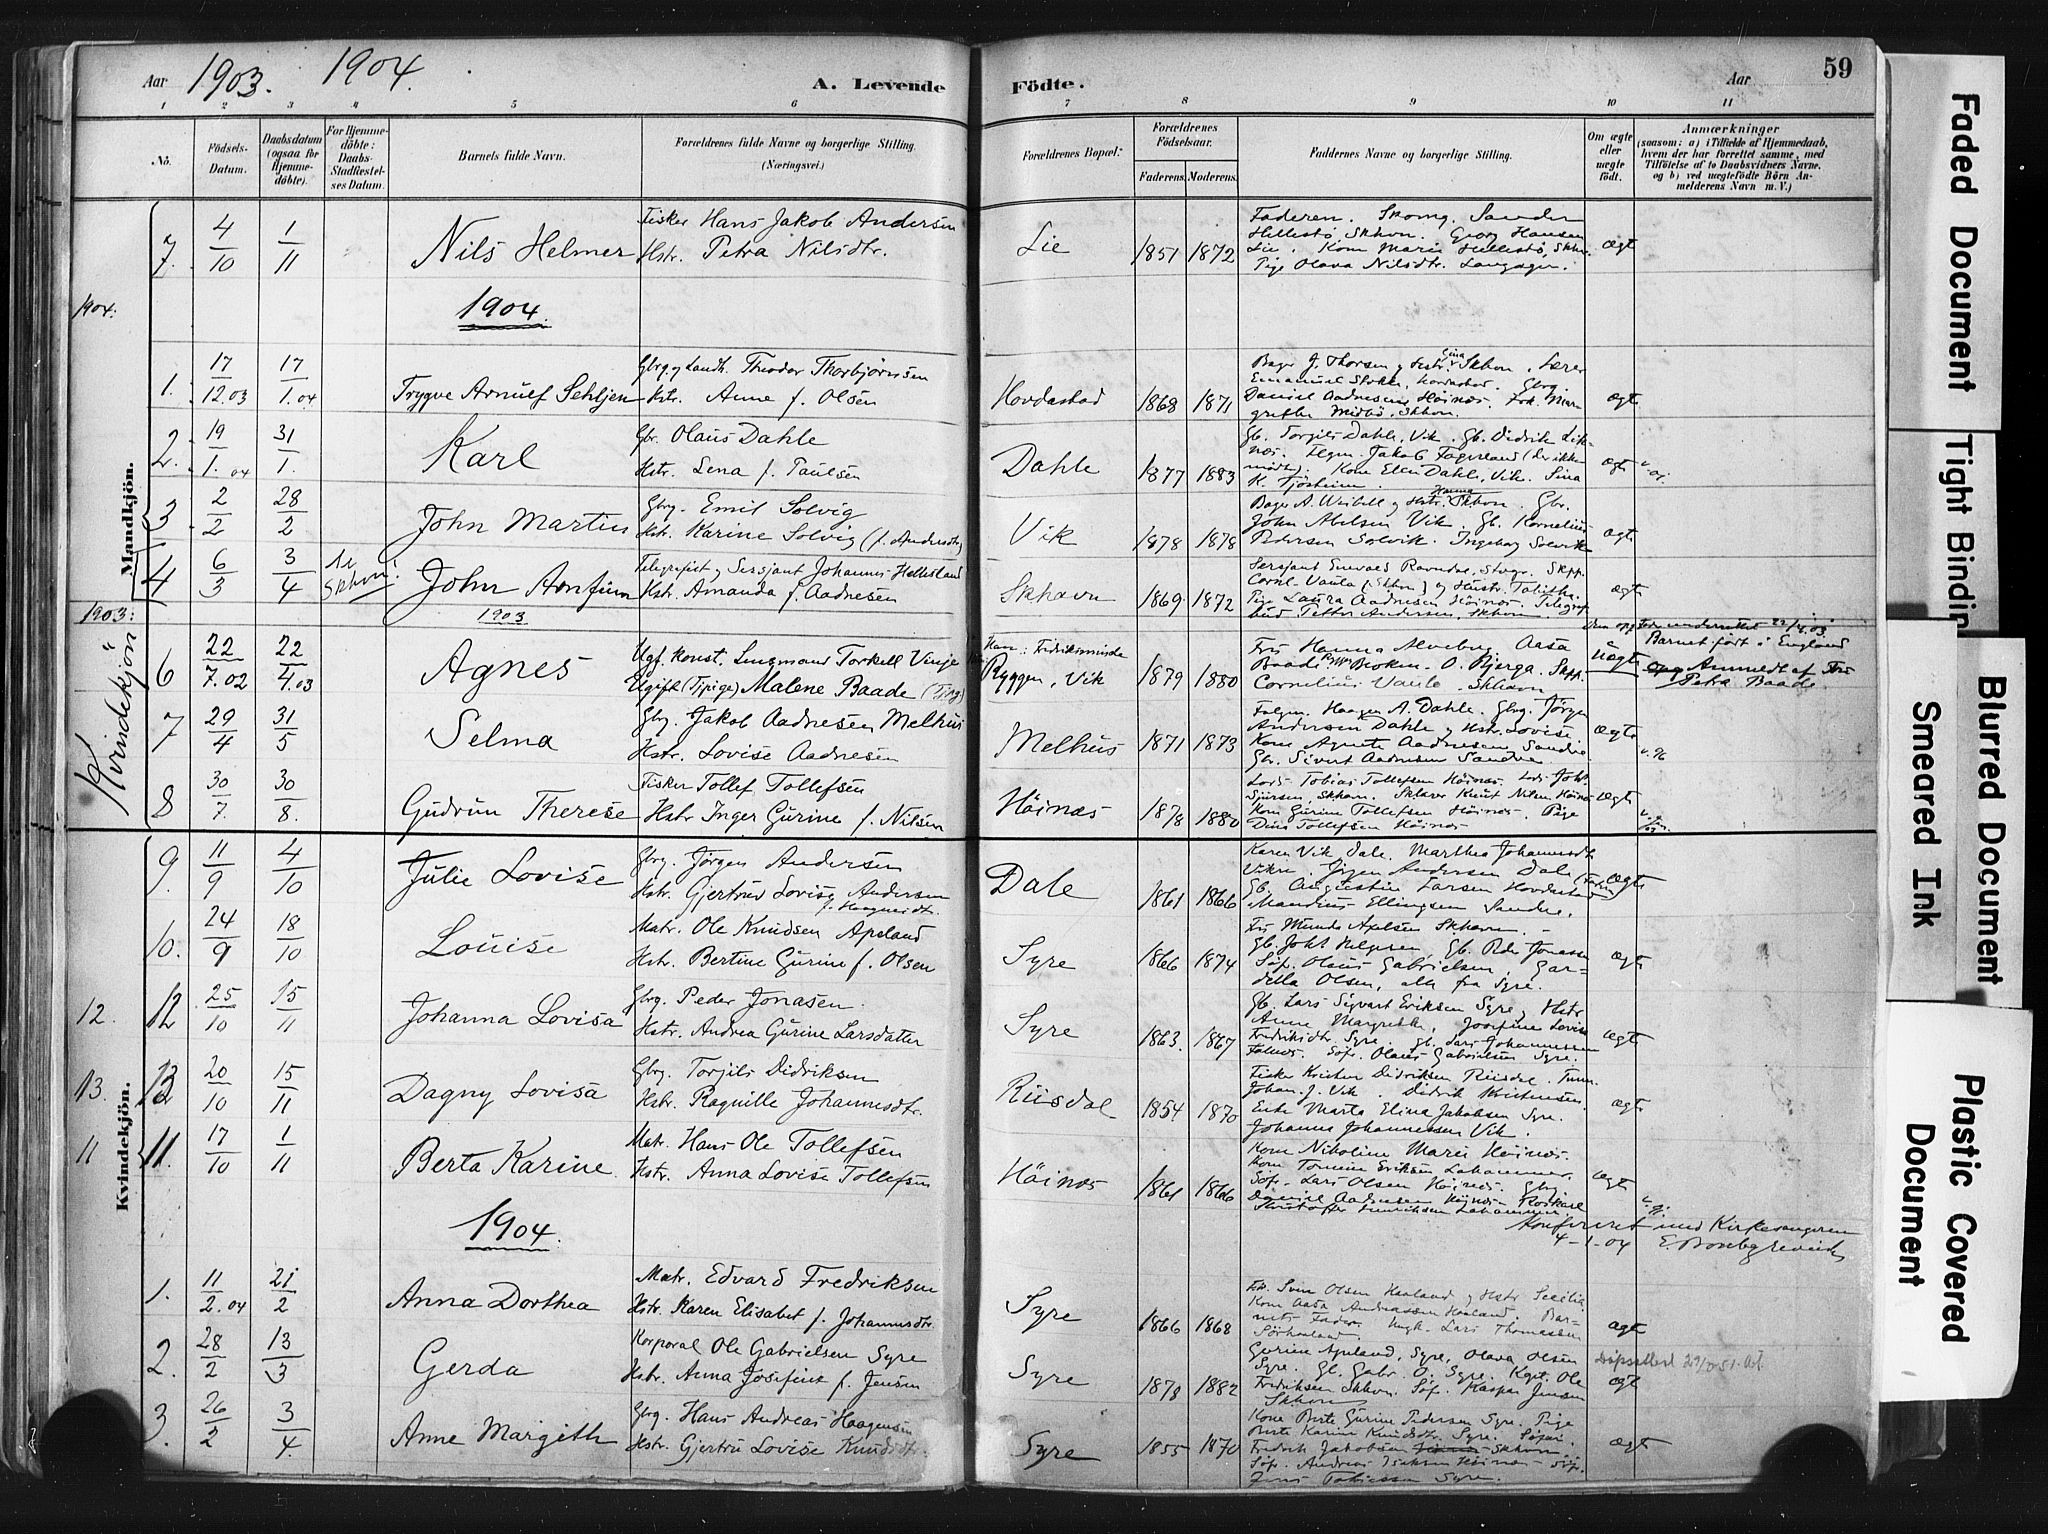 Aar 1903. 1904. A. Levende Födte. Aar 59
1 2 3 4 5 6 7 8 9 10 11
No. Födsels-Datum. Daabsdatum (ogsaa for Hjemme-döbte). For Hjemme-döbte: Daabs-Stadfæstel-ses Datum. Barnets fulde Navn. Forældrenes fulde Navne og borgerlige Stilling. (Næringsvei.) Forældrenes Bopæl. Forældrenes Födselsaar. Faderens. Moderens. Faddernes Navne og borgerlige Stilling. Om ægte eller uægte födt. Anmærkninger
(saasom: a) i Tilfælde af Hjemmedaab,
hvem der har forrettet samme, med
Tilföielse af to Daabsvidners Navne.
og b) ved uægtefödte Börn An-
melderens Navn m. V.)
7. 4/10 1/11 Nils Helmer
Fisker Hans Jakob Andersen
Hstr. Petra Nilsdtr.
Lie 1851 1872
Faderen. Sander
Hellestö Skhvn. Georg Hansen
Lie. Kone Marie Hellestö, Skhvn.
Pige Olava Nilsdtr.
ægt
1904:
1904.
Mandkjön.
1. 17/12.03 17/1.04 Trygve Arnulf Sehljen
Gbrg. og Landh. Theodor Thorbjörnsen
Hstr. Anne f. Olsen
Hovdastad 1868 1871
Bager J. Thorsen og Hstr. Gina Skhvn. Lærer
Emanuel Stokke, Hovdastad. Gbrg.
Daniel Aadnesen Höinæs. Frk. Mar-
grethe Midbö, Skhvn.
ægt
2. 19/1.04 31/1. Karl
Gbr. Olaus Dahle
Hstr. Lena f. Paulsen
Dahle 1877 1883
Gb. Torgils Dahle, Vik. Gb. Didrik Lik-
næs. Jakob Fagerland (der ikke
mödte). Kone Ellen Dahle, Vik. Sina
K. Tjösheim.
ægt
3. 2/2 28/2 John Martin
Gbrg. Emil Solvig
Hstr. Karine Solvig (f. Andersdtr.)
Vik 1878 1878
Bager A. Weibell og Hstr. Hanna Skhvn. Gbr.
John Abelsen Vik. Gb. Kornelius
Pedersen Solvik. Ingeborg Solvik
ægt
4 6/3 3/4 Skhvn. John Arnfinn
Telegrafist og Sersjant Johannes Hellesland
Hstr. Amanda f. Aadnesen
Skhavn 1869 1872
Sersjant Ravndal, Stvgr. Skpp.
Cornl. Vaula (Skhvn) og Hustr. Tabitha.
Pige Laura Aadnesen Höinæs. Telegraf-
bud Petter Andersen, Skhavn.
ægt
1903:
1903
Kvindekjön
6 22/7.02 22/4.03 Agnes
Ugf. Konst. Lingmand Torkell Vinje
Ugift (Tjpige) Malene Baade (Ting)
Ham: Fredriksminde
Ryggen, Vik 1879 1880
Frk Hanna Alveberg. Aasa
Baade pr. Broken. O. Bjerga. Skpp.
Cornelius Vaule. Skhavn
uægt
Fader underrettet 22/4.03.
Barnet födt i England
og Anmeldt af Frk
Petra Baade.
7 29/4 31/5 Selma
Gbrg. Jakob Aadnesen Melhus
Hstr. Lovise Aadnesen
Melhus 1871 1873
Haagen A. Dahle. Gbrg. Jörgen
Andersen Dahle og Hstr. Lovise.
Kone Agnete Aadnesen Sandve
Gbr. Sivert Aadnesen Sandve
ægte
8 30/7. 30/8. Gudrun Therese
Fisker Tollef Tollefsen
Hstr Inger Gurine f. Nilsen
Höinæs 1878 1880
Lods Tobias Tollefsen Höinæs. Lods Joh.
Sjursen Skhavn. Knut Nilsen Höinæs
Kone Gurine Tollefsen Höinæs. Pige
Dina Tollefsen Höinæs
ægt
Kvindekjön.
9. 11/9 4/10 Julie Lovise
Gbrg. Jörgen Andersen
Hstr. Gjertrud Lovise Andersen
f. Haagensdtr.
Dale 1861 1866
Karen Vik Dale. Marthea Johannesdtr.
Vikre. Jörgen Andersen Dale (Faderen)
Gb. Augustin Larsen Hovdastad
Mandius Ellingsen Sandve.
ægt
10. 24/9 18/10 Louise
Matr. Ole Knudsen Apeland
Hstr. Bertine Gurine f. Olsen
Syre 1866 1874
Frk Munda Axelsen Skhavn.
Gb. Joh. Helgesen. Gb. Peder Jonassen
Söf. Olaus Gabrielsen, Gar-
della Olsen, alle fra Syre.
ægt
12. 12 25/10 15/11 Johanna Lovisa
Gbrg. Peder Jonasen.
Hstr. Andrea Gurine Larsdatter
Syre 1863. 1867
Gb. Lars Sigvart Eriksen Syre, Hstr
Anne Margrethe, Josefine Lovise
Fredriksdtr. Syre. Gb. Lars Johannessen
Falnes. Söf. Olaus Gabrielsen Syre.
ægt
13. 13 20/10 15/11 Dagny Lovisa
Gbrg. Torjils Didriksen
Hstr. Ragnille Johannesdtr.
Riisdal 1854 1870
Fisker Kristian Didriksen Riisdal.
Johan. J. Vik. Didrik Kristensen.
Enke Marta Elina Jakobsen Syre.
Johanna Johannessen Vik.
ægt
11 11. 17/10 1/11 Berta Karine
Matr. Hans Ole Tollefsen
Hstr. Anna Lovise Tollefsen
Höinæs 1861 1866
Kone Nikoline Marie Höinæs.
Kone Tomine Eriksen Lahammer.
Söf. Lars Olsen Höinæs. Gbrg.
Daniel Aadnesen Höinæs
Kristoffer Lahammer.
ægt
Konfereret med Kirkesangeren
4-1-04
1904.
1. 11/2.04 21/2 Anna Dorthea
Matr. Edvard Fredriksen
Hstr. Karen Elisabet f. Johannesdtr.
Syre 1866 1868
Sven Olsen Haaland og Hstr Secilie.
Kone Aasa Andreassen Haaland. Bar-
nets Fader. Ungk. Lars Thomassen
Sörhaaland.
ægt
2. 28/2 13/3 Gerda
Korporal Ole Gabrielsen Syre
Hstr. Anna Josefine f. Jensen
Syre 1878 1882
Gurine Apeland, Syre, Olava Olsen
Syre. Gb. Gabr. O. Syre. Kapt. Ole
Fredriksen Skhvn. Söf. Kaspar Jensen
Skhvn
ægt
3. 26/2 3/4. Anne Margith
Gbrg. Hans Andreas Haagensen
Hstr. Gjertru Lovise Knudsdtr.
Syre 1855 1870
Kone Berte Gurine Pedersen Syre. Pige
Berte Karine Knudsdtr. Syre.
Fredrik Jakobsen Skhvn.
Söf. Andreas Isaksen Höinæs. Söf.
Jens Tobiassen Syre.
ægt
Faded Document
Tight Binding
Blurred Document
Smeared Ink
Plastic Covered Document